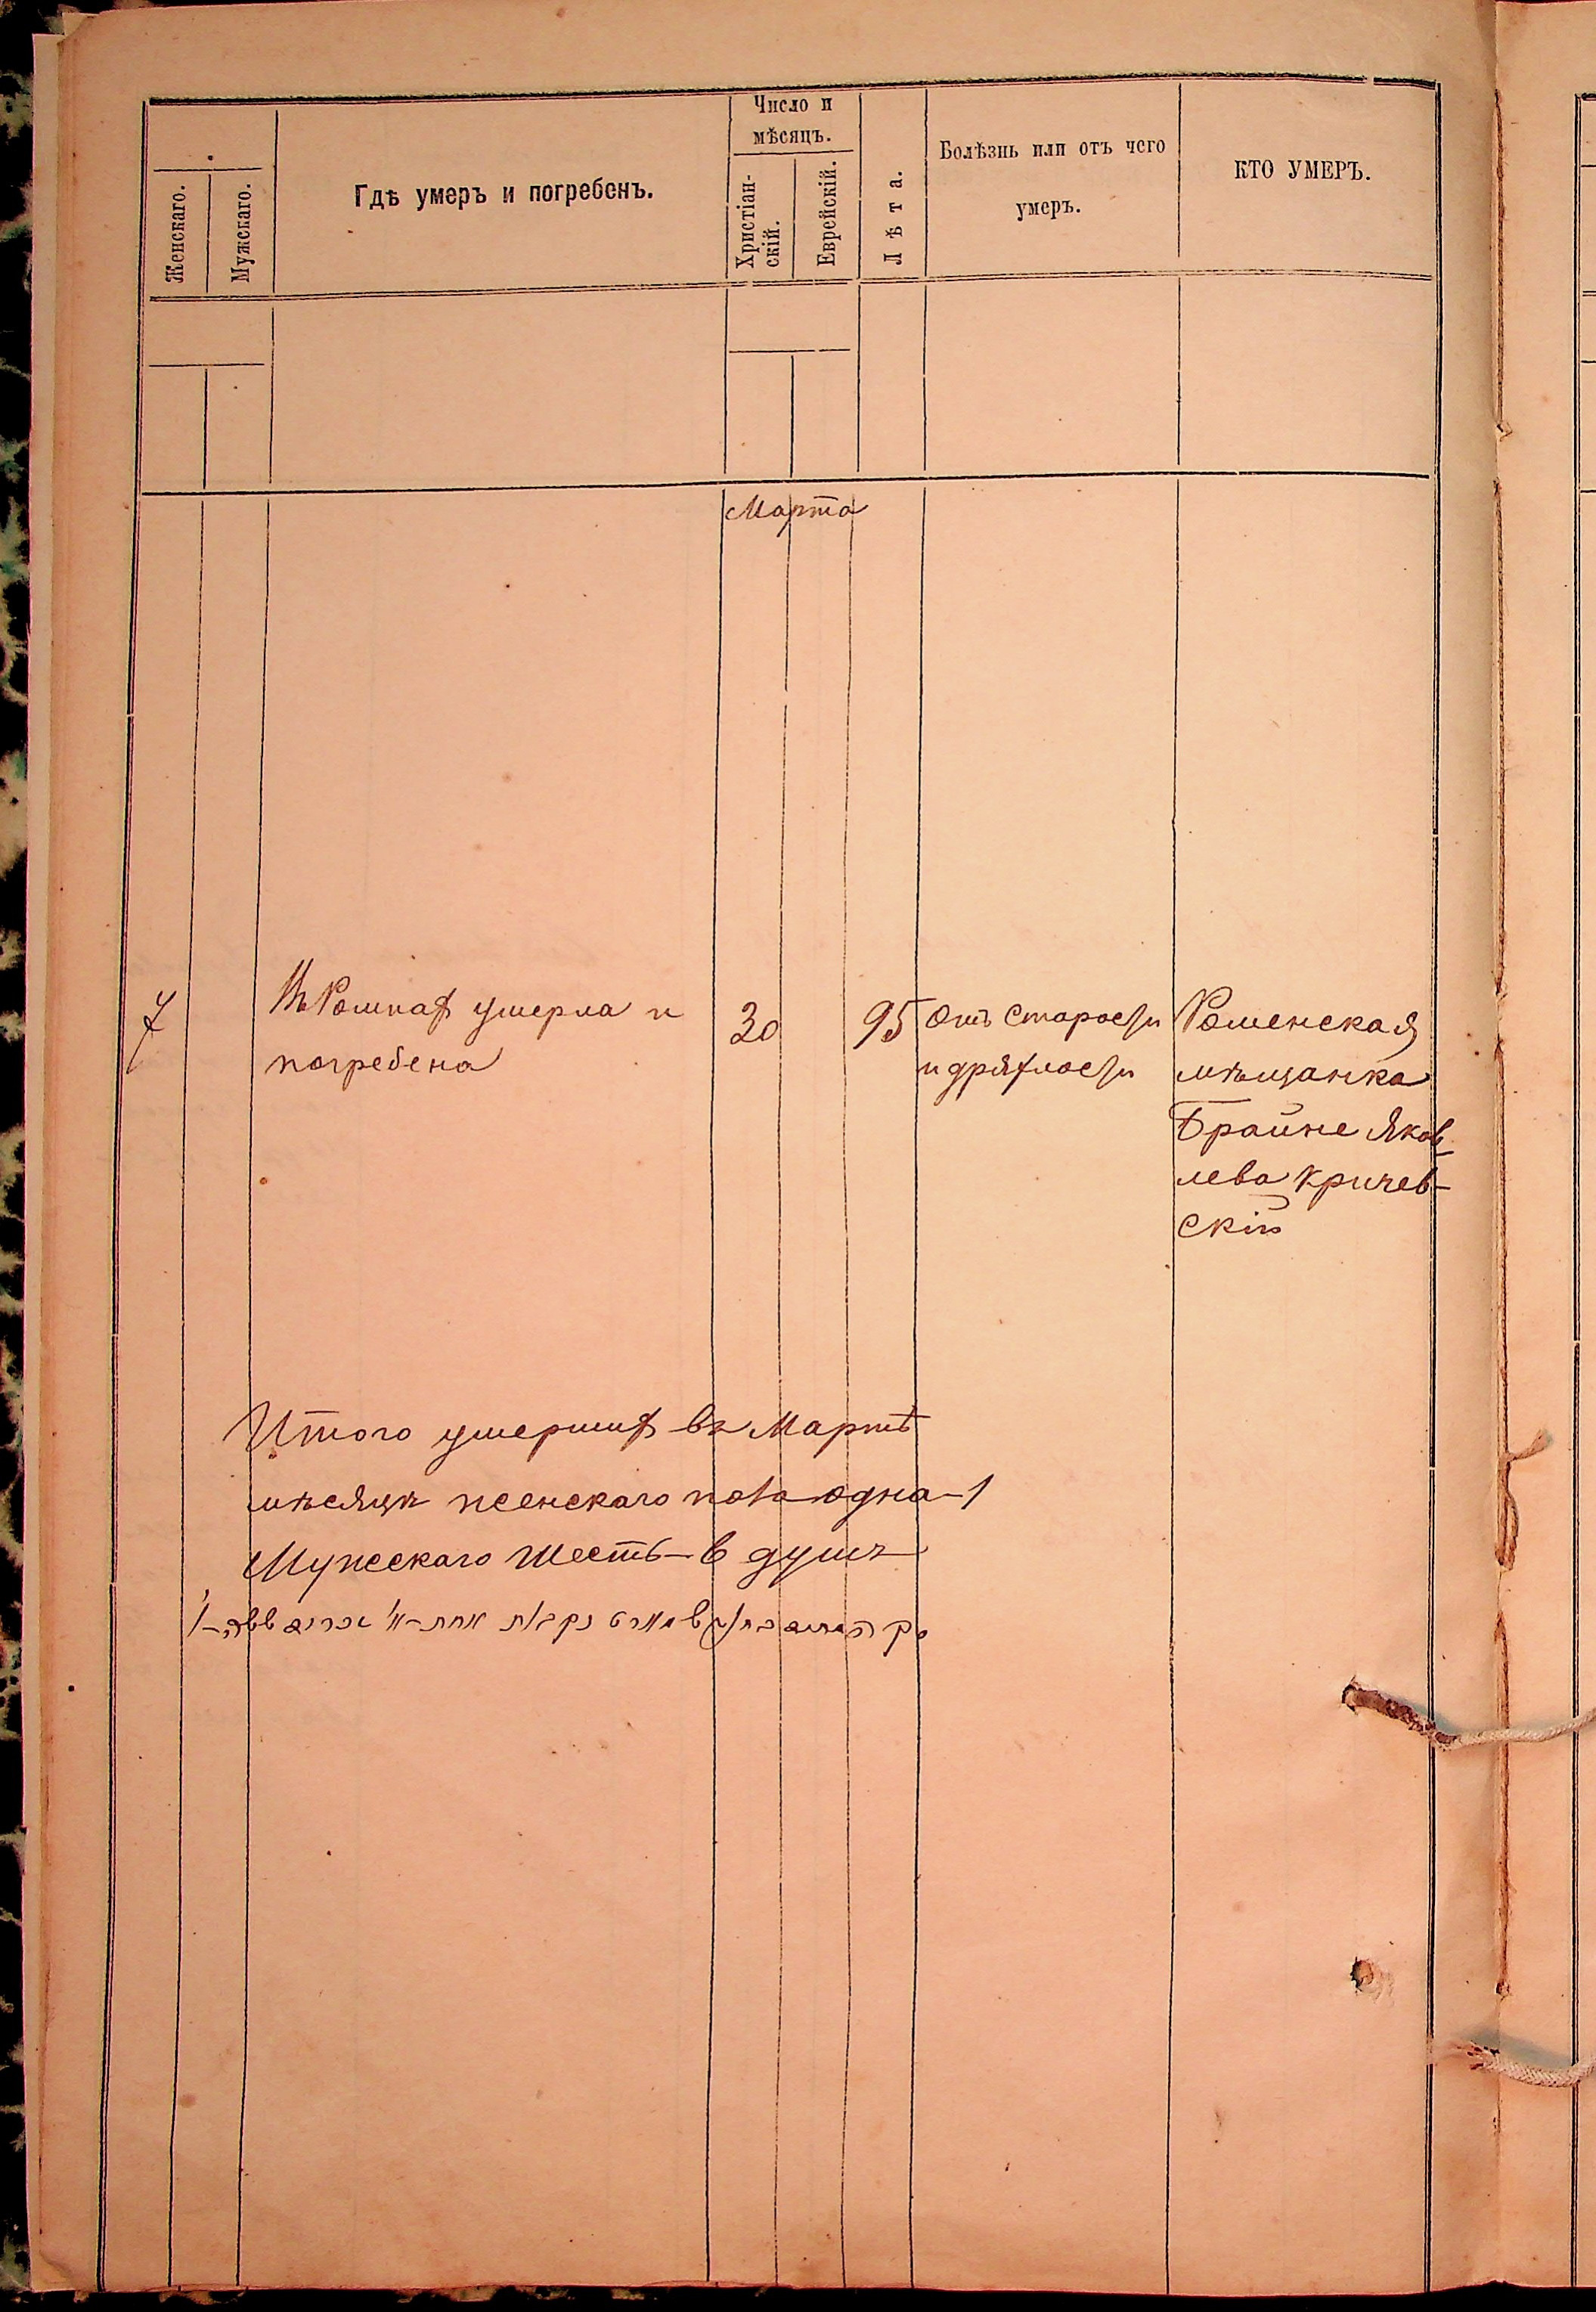 Женскаго.
Мужскаго.
Гдѣ умеръ и погребенъ.
Число и
мѣсяцъ.
Христіан-
скій.
Еврейскій.
Лѣта.
Болѣзнь или отъ чего
умеръ.
КТО УМЕРЪ.
Марта
7
Въ Ромнах умерла и
погребена
30
95
Отъ старости
и дряхлости
Роменская
мѣщанка
Брайне Яков
лева Кричев-
скій
Итого умерших въ Мартѣ
мѣсяцѣ женскаго пола одна-1
Мужескаго шесть-6 душъ